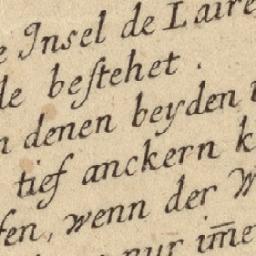 Insel de Laire
bestehet.
denen beyden
tief anckern
wenn der
nur im̄e